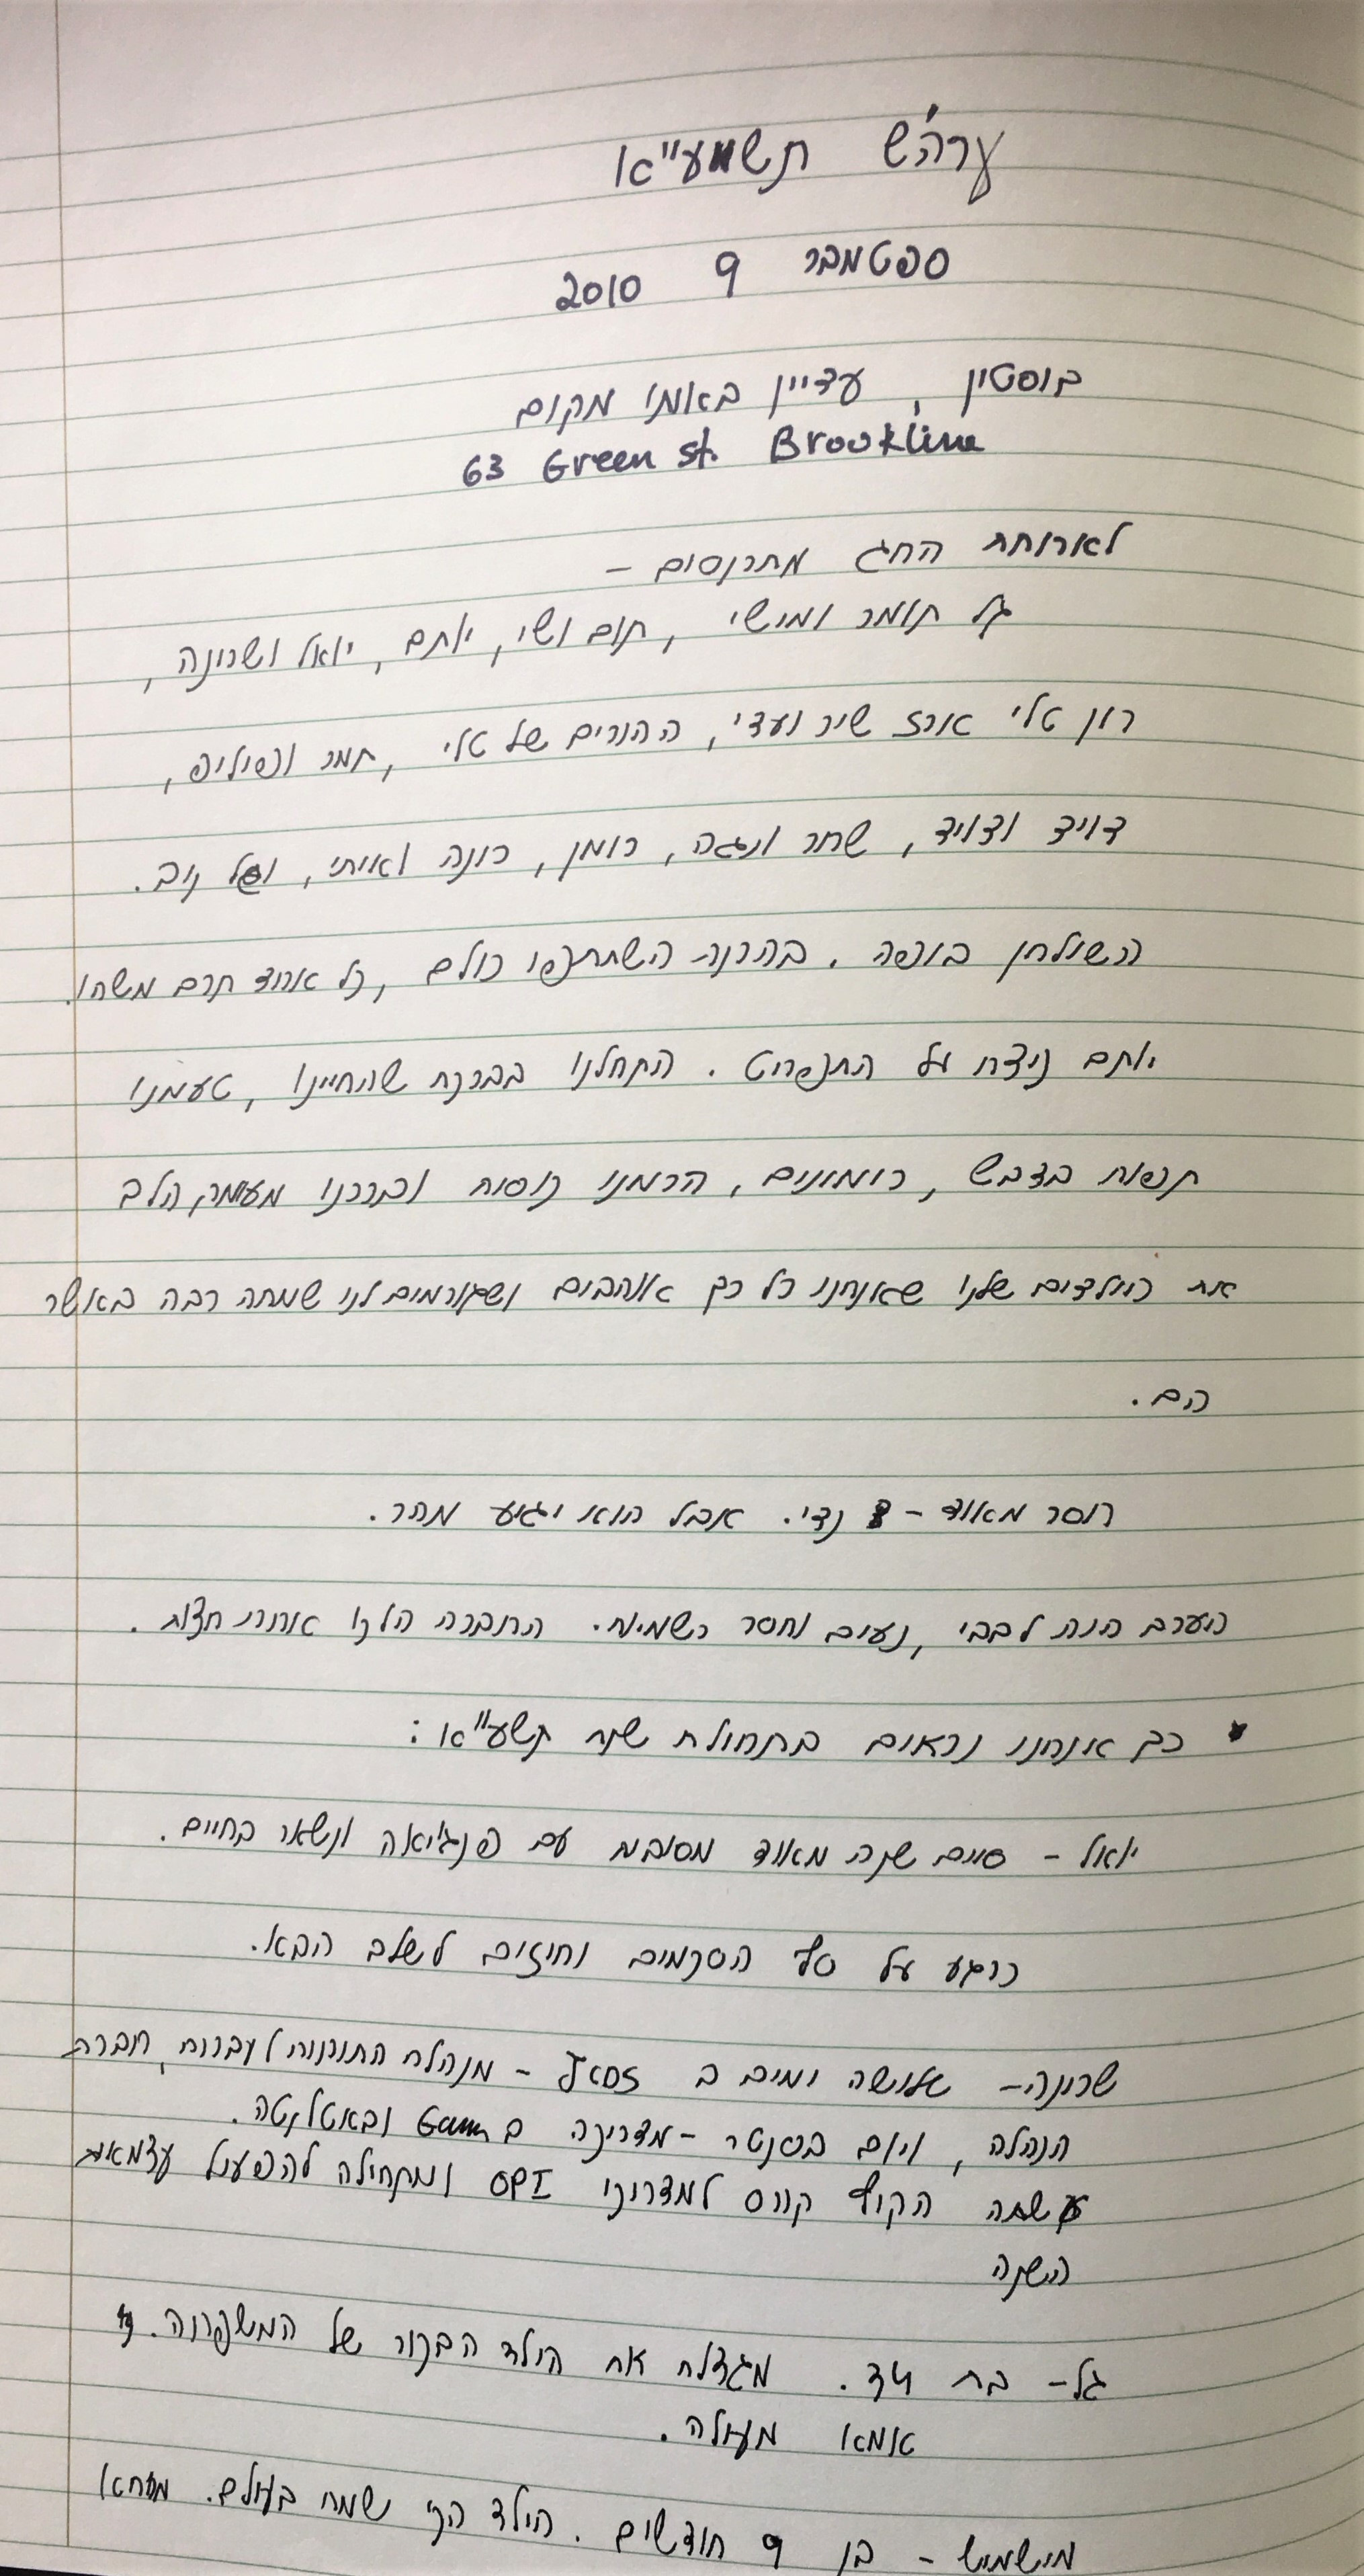 ערה'ש תשע"א
ספטמבר 9 2010
בוסטון, עדיין באותו מקום
63 Green st. Brookline
לארוחת החג מתכנסים –
גל תומר ומישי, תום ושי, יותם, יואל ושרונה,
רון טלי ארז שיר ועדי, ההורים של טלי, תמר ופיליפ,
דויד ודויד, שחר ונגה, רומן, רונה ואיתי, וגל ניב.
השולחן בופה. בהכנה השתתפו כולם, כל אחד תרם משהו.
יותם ניצח על התפריט. התחלנו בברכת שהחיינו, טעמנו
תפוח בדבש, רימונים, הרמנו כוסות וברכנו מעומק הלב
את הילדים שלנו שאנחנו כל כך אוהבים ושגורמים לנו שמחה רבה באשר
הם.
חסר מאוד – נדי. אבל הוא יגיע מחר.
הערב היה לבבי, נעים וחסר רשמיות. החברה הלכו אחרי חצות.
כך אנחנו נראים בתחילת שנת תשע"א:
יואל – סיים שנה מאוד מסובכת עם פנגיאה ונשאר בחיים.
כרגע על סף הסכמים וחוזים לשלב הבא.
שרונה – שלושה ימים ב JCDS – מנהלת התוכנית לעברית, חברת
הנהלה, ויום בסנטר – מדריכה ב Gann ובאטלנטה.
עשתה הקיץ קורס למדריכי OPI ומתחילה להפעיל עצמאית
השנה
גל – בת 34. מגדלת את הילד הבכור של המשפחה.
אמא מעולה.
מישמיש – בן 9 חודשים. הילד הכי שמח בעולם.